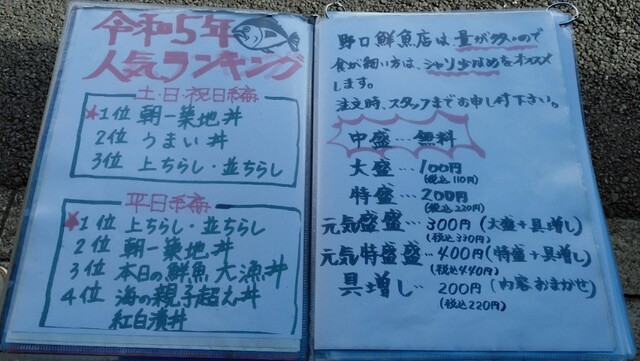 令和5年
人気ランキング
土・日・祝日編
★1位 朝一築地丼
2位 うまい丼
3位 上ちらし・並ちらし
平日編
★1位 上ちらし・並ちらし
2位 朝一築地丼
3位 本日の鮮魚大漁丼
4位 海の親子超え丼
紅白漬丼
野口鮮魚店は量が多いので
食が細い方は、シャリ少なめをオススメ
します。
注文時、スタッフまでお申し付け下さい。
中盛…無料
大盛…100円
(税込110円)
特盛…200円
(税込220円)
元気盛盛…300円(大盛+具増し)
(税込330円)
元気特盛盛…400円(特盛+具増し)
(税込440円)
具増し…200円(内容おまかせ)
(税込220円)